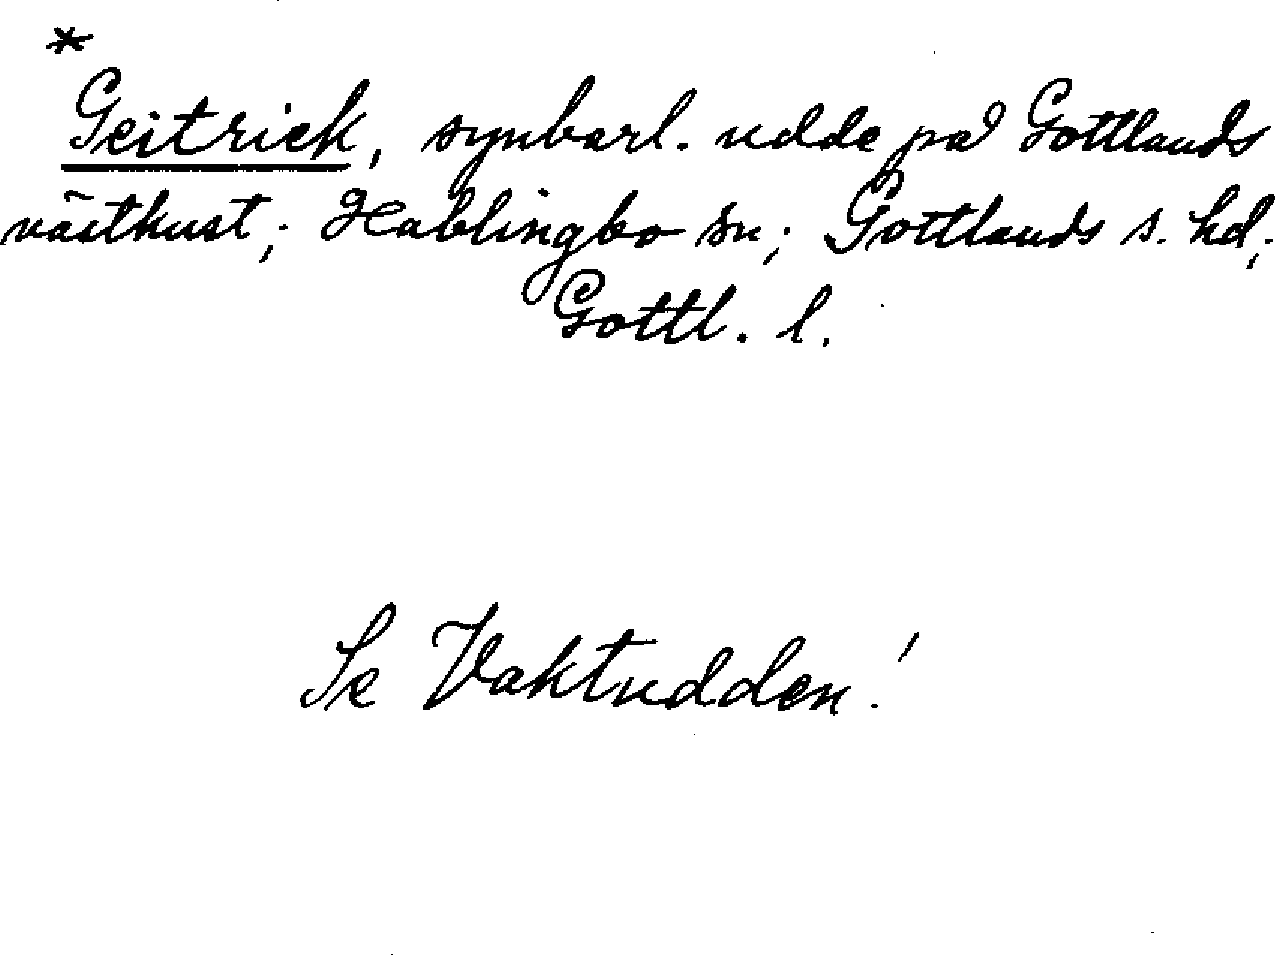 *
Geitriek, synbarl. udde på Gottlands
västkust; Hablingbo sn; Gottlands s. hd,
Gottl. l.
Se Vaktudden!